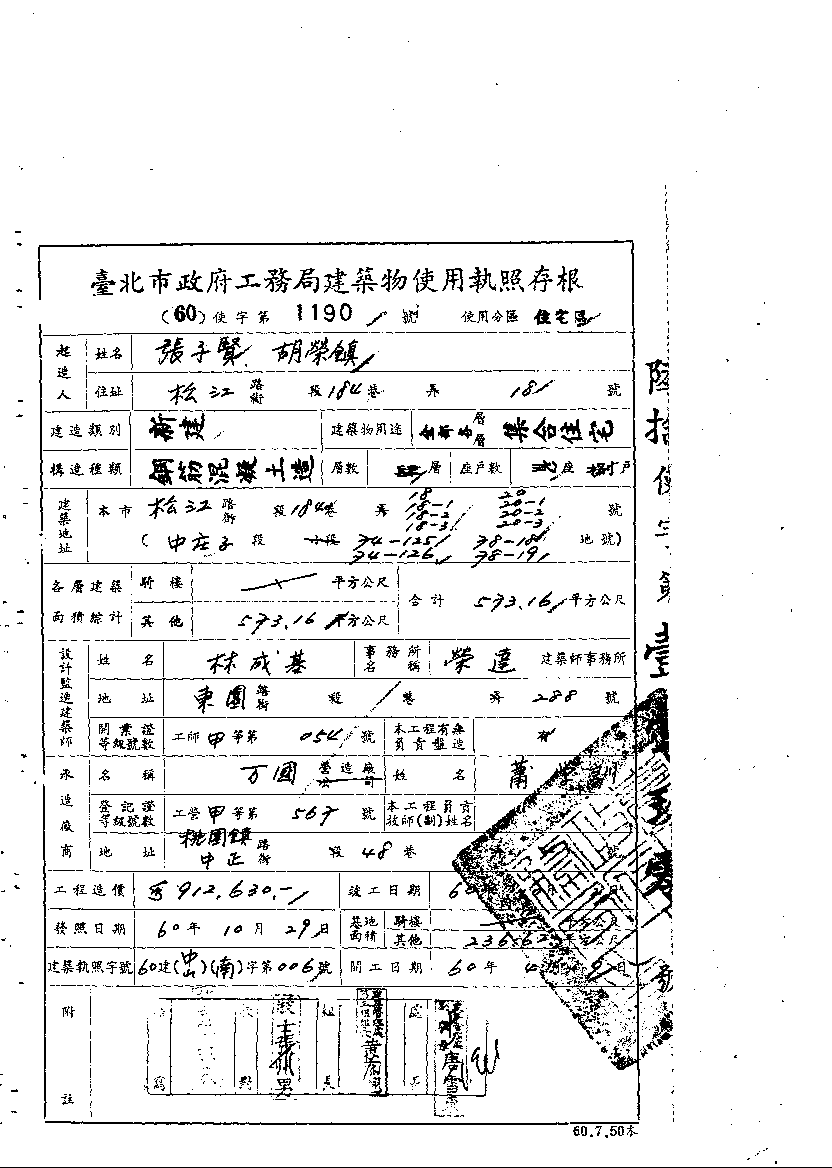 臺北市政府工務局建築物使用執照存根
(60)使字第 1190 號 使用分區 住宅區
起造人 姓名 張子賢 胡榮鎮
住址 松江 路街 段 184 巷 弄 181 號
建造類別 新建 建築物用途 層層 集合住宅
構造種類 鋼筋混凝土造 層數 層 座戶數 座 戶
建築地址 本市 松江 路街 段 184 巷 弄 18 18-1 18-2 18-3 20 20-1 20-2 20-3 號
(中庄子 段 小段 74-125 74-126 78-18 78-19 地號)
各層建築面積綜計 騎樓 平方公尺 合計 573.16 平方公尺
其他 573.16 平方公尺
設計監造建築師 姓名 林成基 事務所名稱 榮達 建築師事務所
地址 東園 路街 段 巷 弄 288 號
開業證等級號數 工師 甲 等第 054 號 本工程有無負責監造 有
承造廠商 名稱 万國 營造廠公司 姓名 蕭
登記證等級號數 工營 甲 等第 567 號 本工程負責技師(副)姓名
地址 桃園鎮中正 路街 段 48 巷 號
工程造價 912,630.- 竣工日期 60 年 月 日
發照日期 60 年 10 月 29 日 基地面積 騎樓 平方公尺
其他 236.62 平方公尺
建築執照字號 60 建(中山)(南)字第 006 號 開工日期 60 年 4 月 9 日
附註
60.7.50本